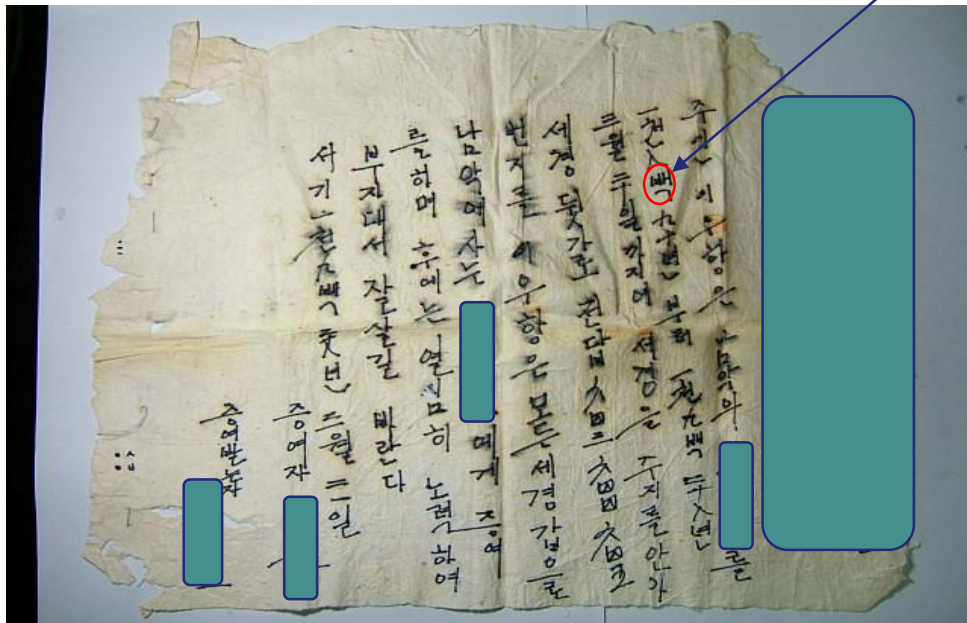 주인 이우항은 를
一천八백九十년 부터 一천九백 년
三월 까지에 세경을 주지를 안아
세경 댓가로 전답 六四三 六四四 六四五
번지를 이우항은 모든 세경 갑으로
남악여사는 에게 증여
를하며 후에는 열심히 노력하여
부자대서 잘살길 바란다
서기 一천九백 년 三월 二일
증여자
증여받는자